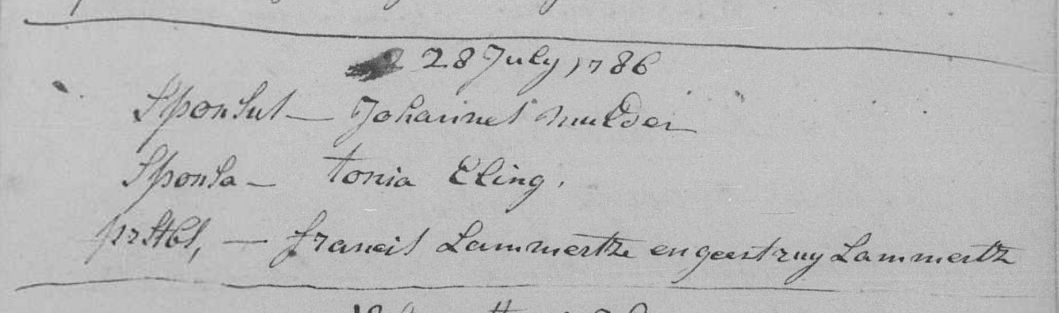 28 July 1786
Sponsus — Johannes Mulder
Sponsa — tonia Eling.
prstbs, — francis Lammertz en geertruy Lammertz